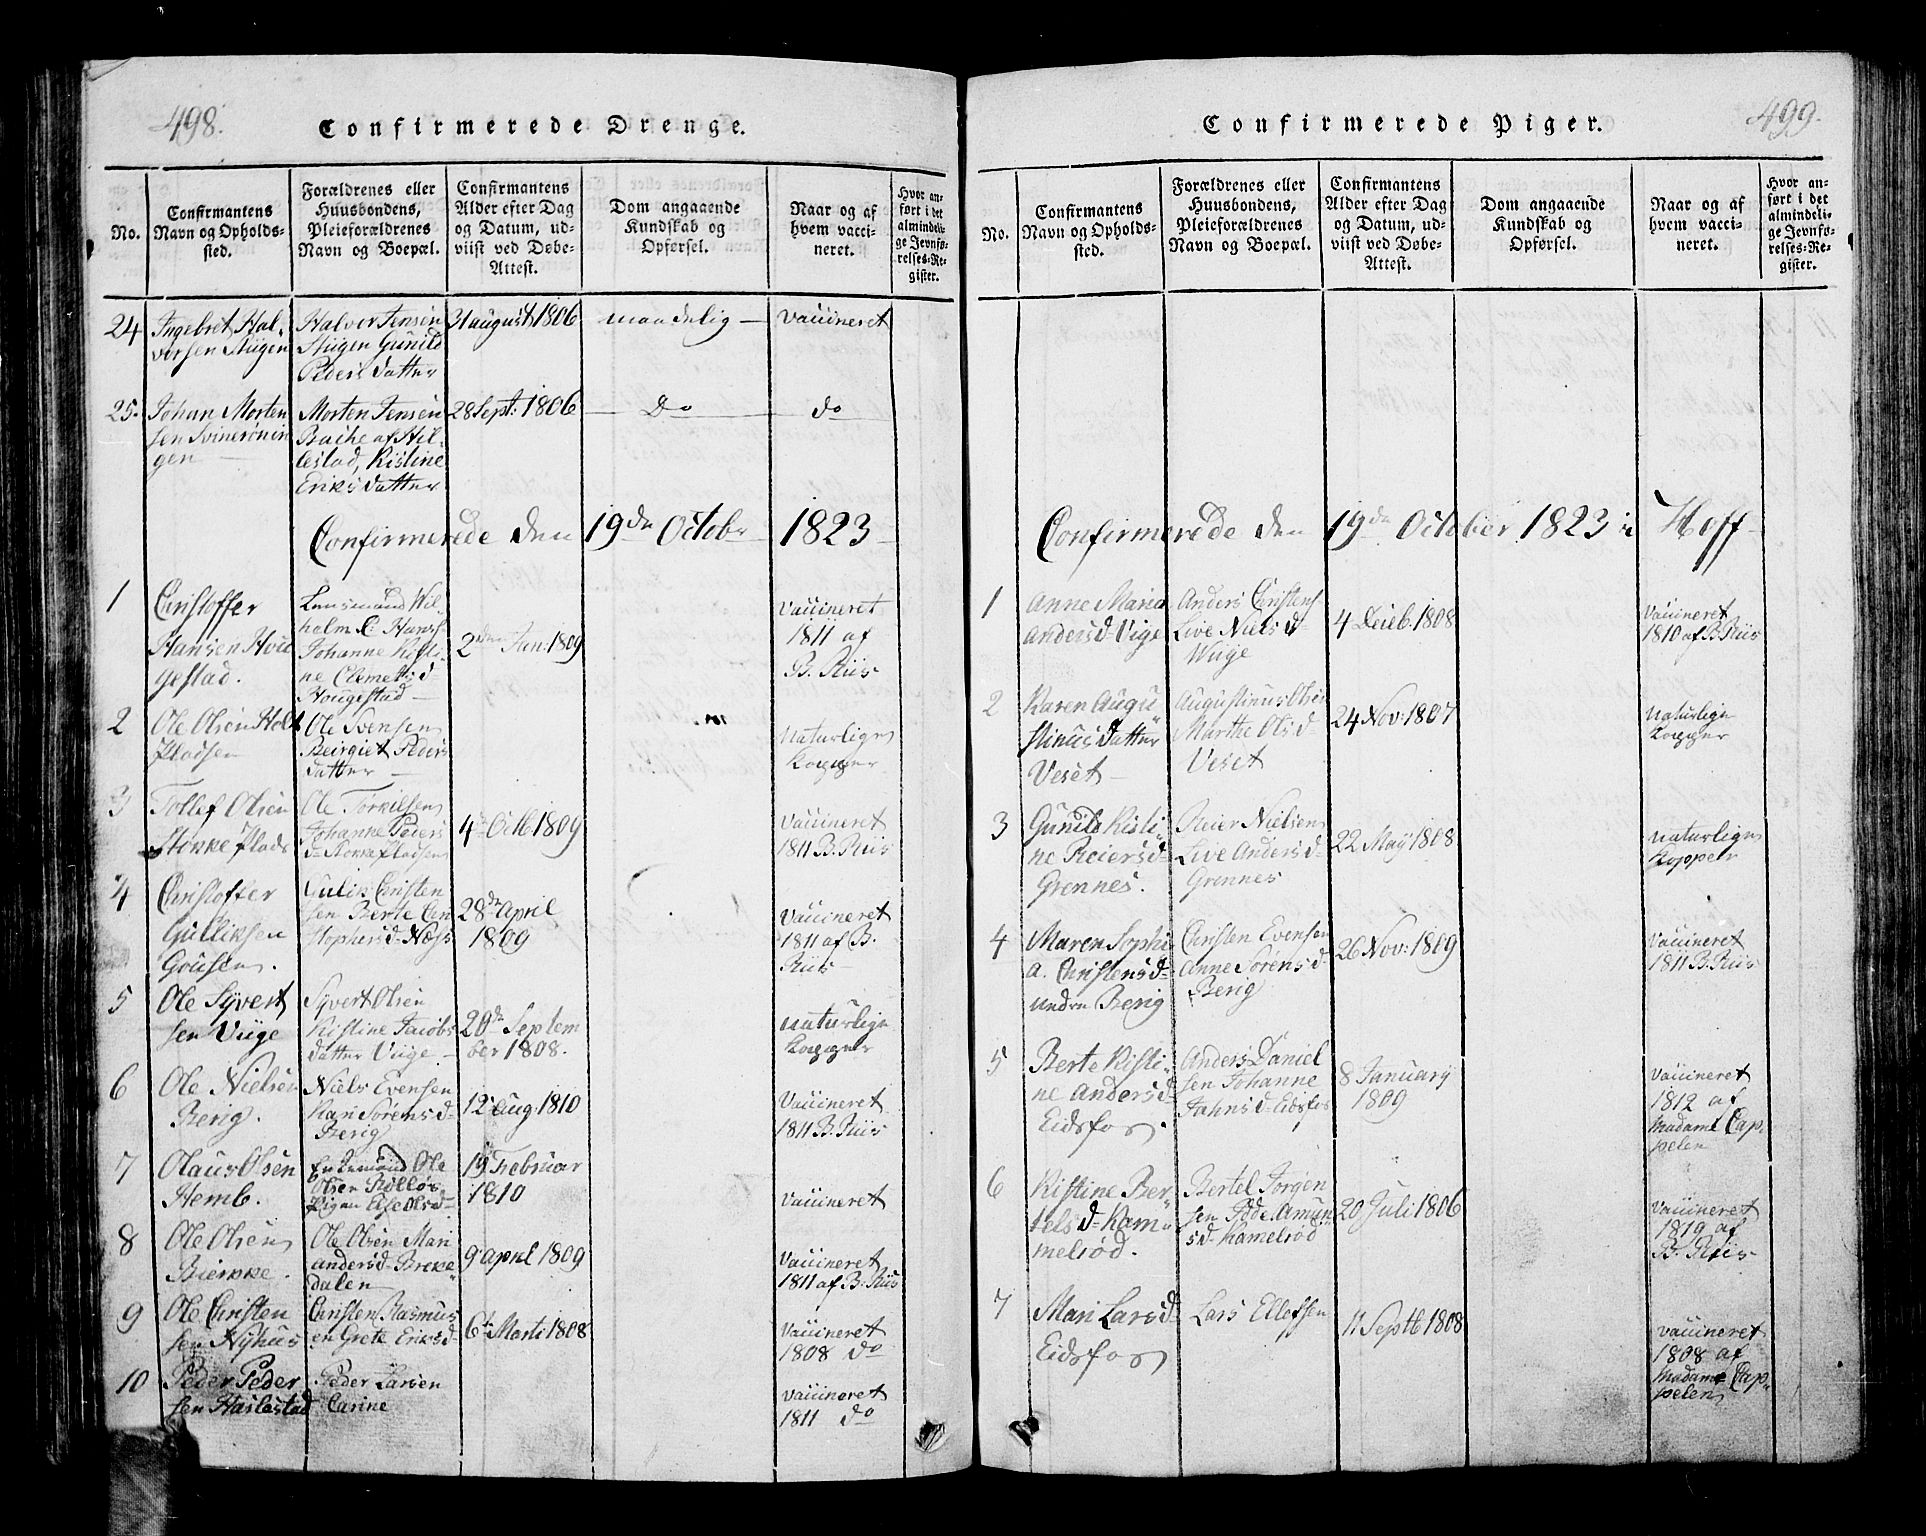 498.
Confirmerede Drenge.
No.
Confirmantens
Navn og Opholds-
sted.
Forældrenes eller
Huusbondens,
Pleieforældrenes
Navn og Boepæl.
Confirmantens
Alder efter Dag
og Datum, ud-
viist ved Døbe-
Attest.
Dom angaaende
Kundskab og
Opførsel.
Naar og af
hvem vacci-
neret.
Hvor an-
ført i det
almindeli-
ge Jevnfø-
relses-Re-
gister.
24 Ingebret Hal-
vorsen Stügen
Halver Jensen
Stügen Gunild
Peders datter
31 august 1806
maadelig
Vaccineret
25. Johan Morten
sen Svinerønin
gen
Morten Jensen
Bache af Hil-
lestad, Kistine
Eriks datter
28 Sept: 1806
Do
do
Confirmerede den 19de Octobr 1823
1 Christoffer
Hansen Hou
gestad.
Lensmand Wil-
helm C: Hans
Johanne Kisti-
ne Clemetsd
Hougestad
2den Jan: 1809
Vaccineret
1811 af
B. Riis
2 Ole Olsen Holt
Pladsen
Ole Svensen
Beirgiet Peders
datter
Naturlige
Kopper
3 Tollef Olsen
Stokke Plads
Ole Torkilsen
Johanne Peders
d Stokke Pladsen
4 Octb 1809
Vaccineret
1811 B. Riis
4 Christoffer
Gulliksen
Gousen.
Gulik Christen
sen Berte Chri
stophersd Næss
28de April
1809
Vaccineret
1811 af B.
Riis
5 Ole Syvert
sen Viige
Syvert Olsen
Kistine Jacobs
datter Viige
20de Septem
ber 1808.
Naturlige
Kopper
6 Ole Nielsen
Berig.
Niels Evensen
Kari Sorensd
Berig
12 Aug. 1810
Vaccineret
1811 B. Riis
7 Olaus Olsen
Hemb.
Enkemand Ole
Olsen
Pigen Else Olsd
19 Februar
1810
Vaccineret
8 Ole Olsen
Bierkke.
Ole Olsen Mari
andersd Breke
dalen
9 April 1809
Vaccineret
1811 af B. Riis
9 Ole Christen
sen Nyhus
Christen Rasmus
en Grete Eriksd
6te Marti 1808
Vaccineret
1808 do
10 Peder Peder
sen Haslestad
Peder Larsen
Carine
Vaccineret
1811 do
499.
Confirmerede Piger.
No.
Confirmantens
Navn og Opholds-
sted.
Forældrenes eller
Huusbondens,
Pleieforældrenes
Navn og Boepæl.
Confirmantens
Alder efter Dag
og Datum, ud-
viist ved Døbe-
Attest.
Dom angaaende
Kundskab og
Opførsel.
Naar og af
hvem vacci-
neret.
Hvor an-
ført i det
almindeli-
ge Jevnfø-
relses-Re-
gister.
Confirmerede den 19de October 1823 i Hoff
1 Anne Maria
andersd Vige
Anders Christens
Live Niels d
Wiige
4 Deceb. 1808
Vaccineret
1810 af B. Riis
2 Karen Augu
stinus datter
Veset
Augustinus Olsen
Marthe Ols d
Veset
24 Nov: 1807
Naturlige
Kopper
3 Gunild Kisti
ne Reiersd
Grennes.
Reier Nielsen
Live Anders d
Grennes
22 May 1808
Naturlige
Kopper
4 Maren Sophi
a. Christensd
undre Berig
Christen Evensen
Anne Sorens d
Berig
26 Nov: 1809
Vaccineret
1811 B. Riis
5 Berte Kisti
ne Andersd
Eidsfos.
Anders Daniel
sen Johanne
Jahnsd Eidsfos
8 January
1809
Vaccineret
1812 af
Madame Cap-
pelen
6 Kistine Ber
telsd Kam
melrød.
Bertel Jorgen
sen Tode Amun
sd Kamelrød
20 Juli 1806
Vaccineret
1819 af
B. Riis
7 Mari Larsd
Eidsfos
Lars Ellefsen
11 Septb 1808
Vaccineret
1808 af
Madame Cap-
pelen